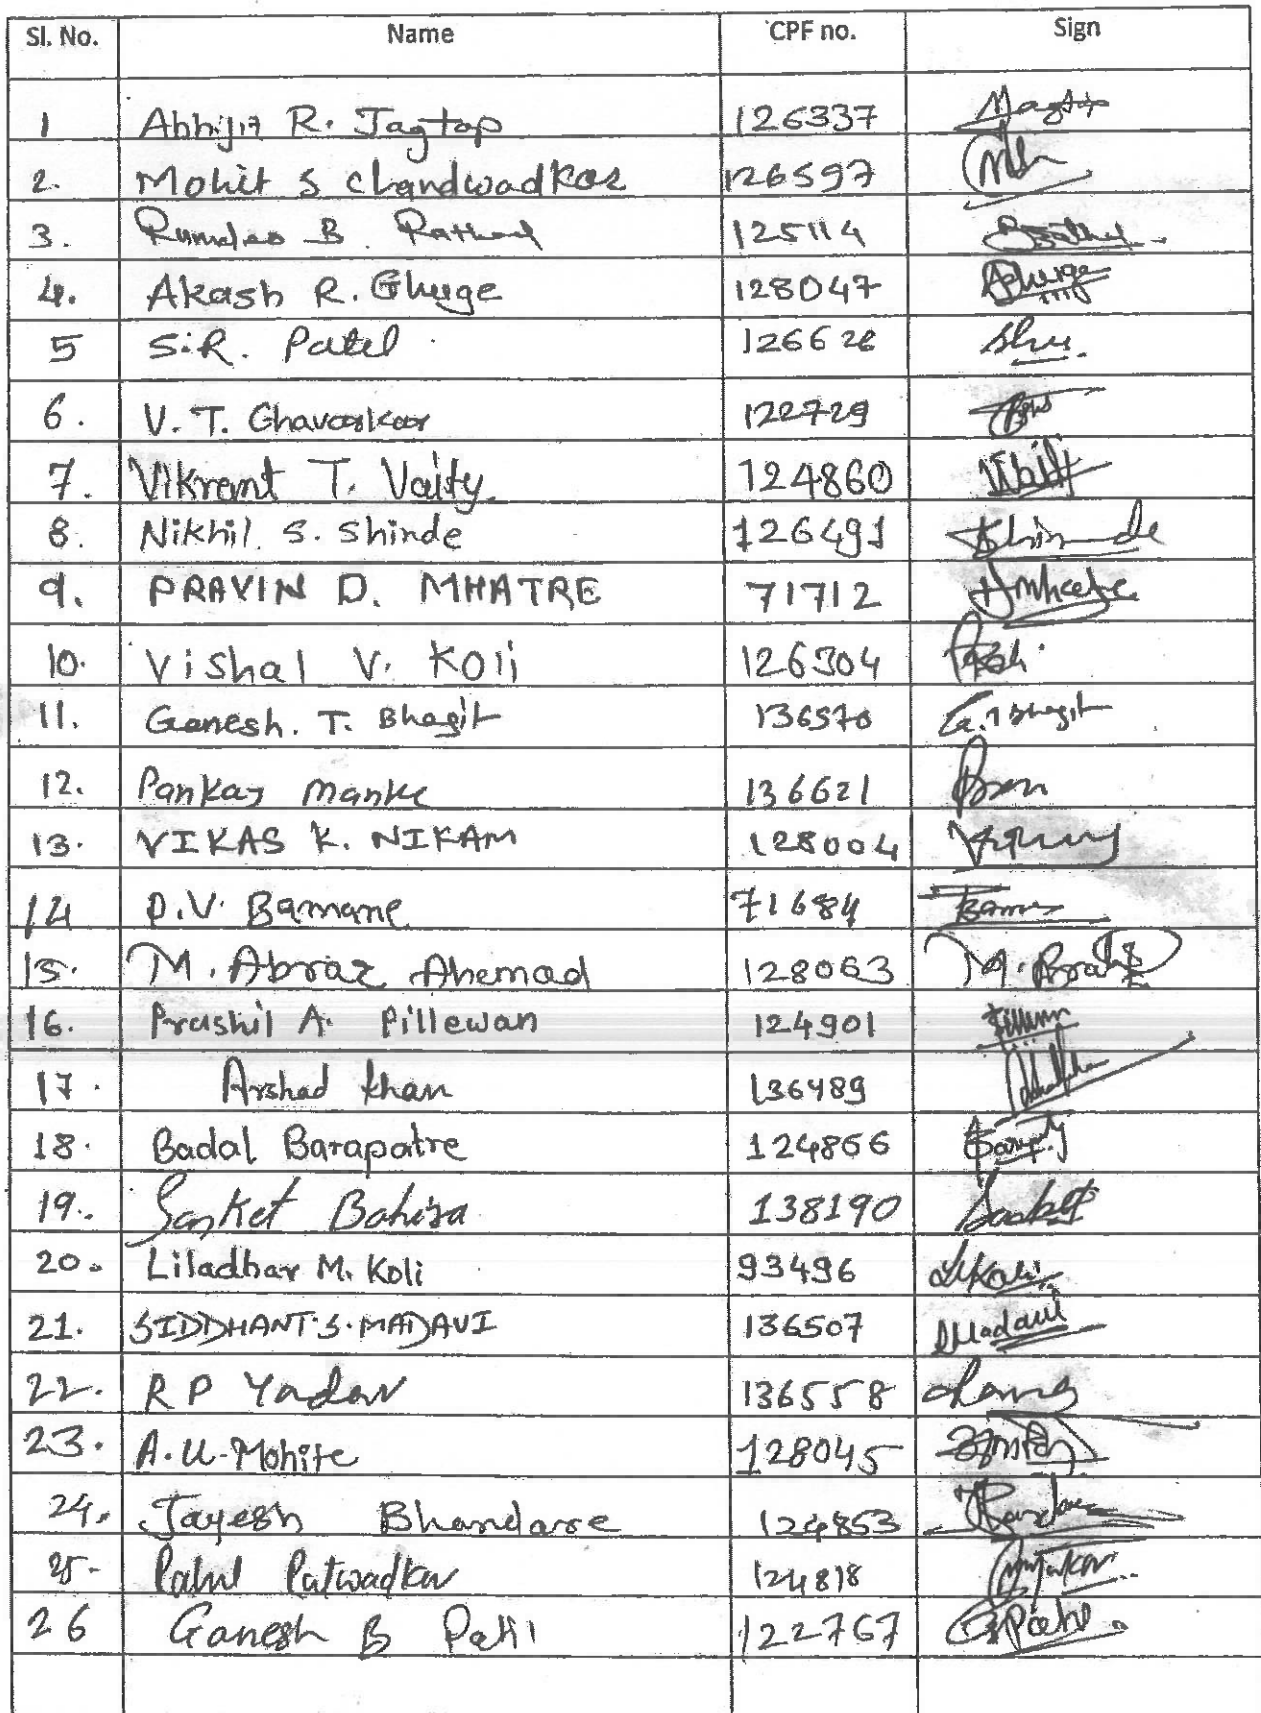 Sl. No. Name CPF no. Sign
1 Abhijit R. Jagtap 126337
2. Mohit S Chandwadkar 126597
3. Ramdas B. Rathod 125114
4. Akash R. Ghuge 128047
5 S.R. Patel 126628
6. V. T. Ghavarkar 122729
7. Vikrant T. Vaity. 124860
8. Nikhil. S. Shinde 126491 Shinde
9. PRAVIN D. MHATRE 71712
10. Vishal V. Koli 126304
11. Ganesh. T. Bhagit 136570 G. T Bhagit
12. Pankaj Manke 136621
13. VIKAS K. NIKAM 128004
14 D.V. Bamane 71684
15. M. Abraz Ahemad 128063
16. Prashil A. Pillewan 124901
17. Arshad Khan 136489
18. Badal Barapatre 124866
19. Sanket Bahira 138190
20. Liladhar M. Koli 93496
21. SIDDHANT.S.MADAVI 136507 SMadavi
22. R P Yadav 136558
23. A.U.Mohite 128045
24. Jayesh Bhandare 124853
25- Patwadkar 124818
26 Ganesh B Patil 122767